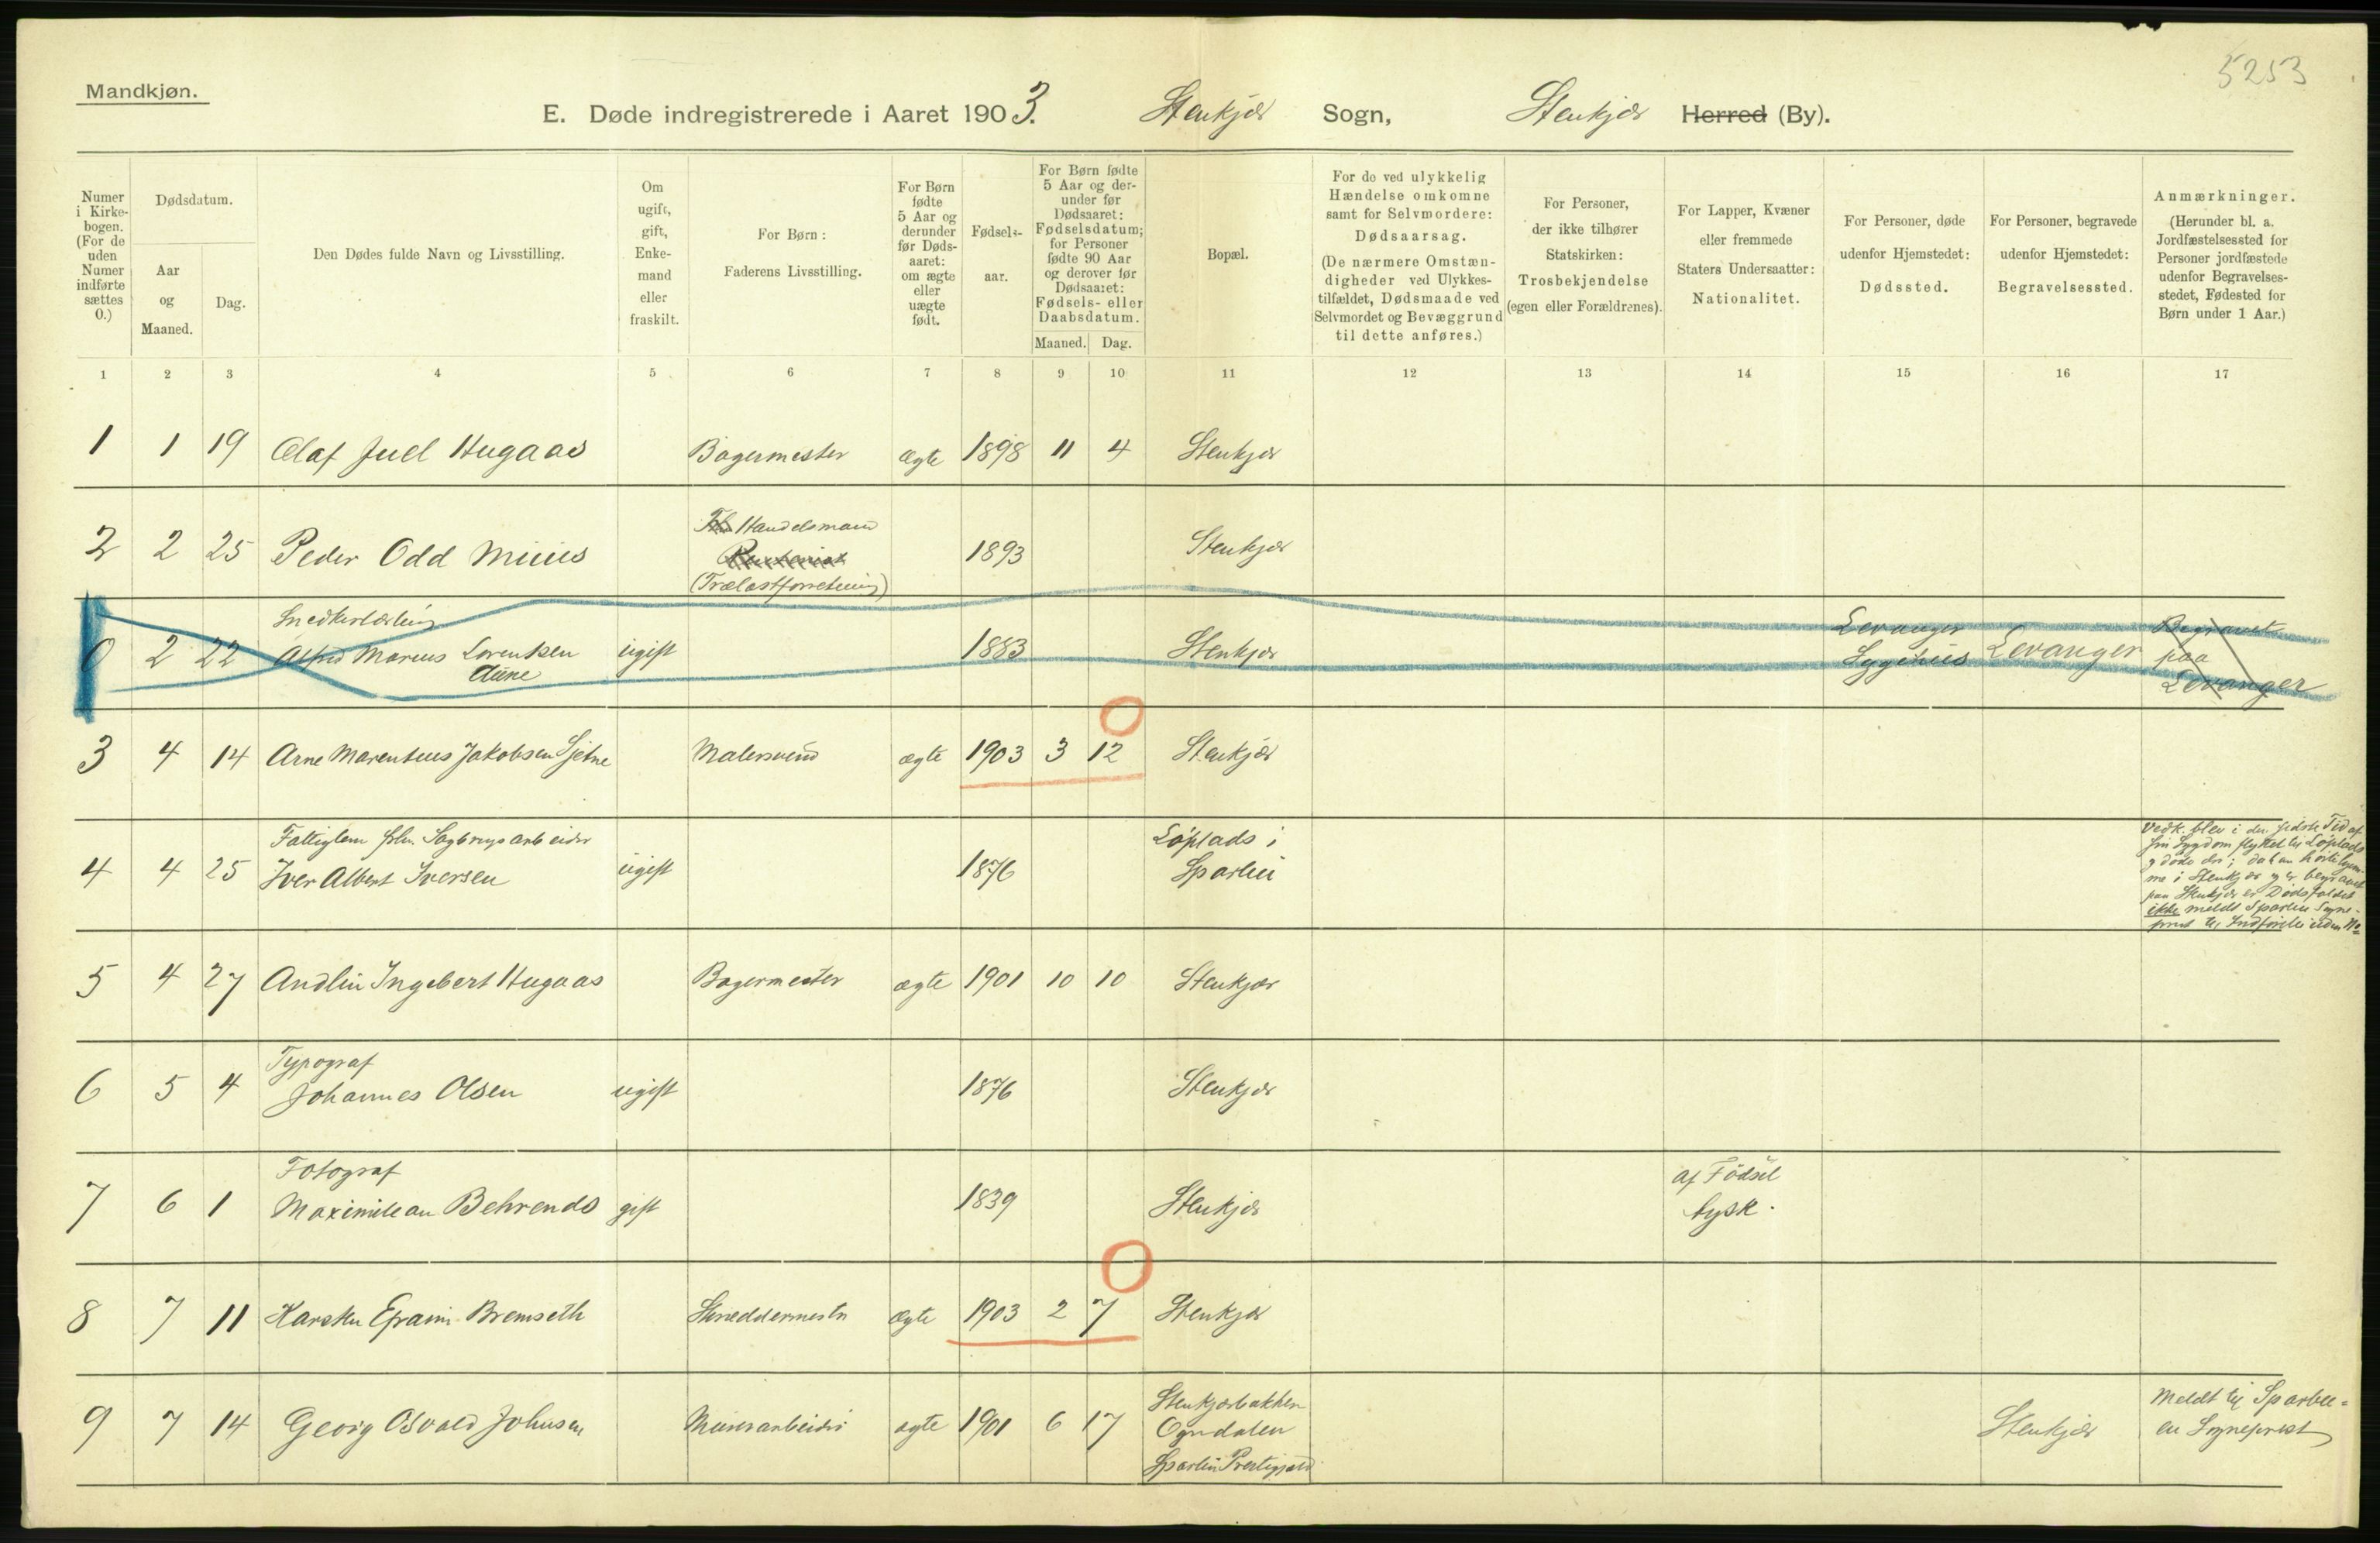 5253
Mandkjøn.
E. Døde indregistrerede i Aaret 1903. Stenkjær Sogn, Stenkjær Herred (By).
Numer i Kirke- bogen. (For de uden Numer indførte sættes 0.)
Dødsdatum.
Aar og Maaned.
Dag.
Den Dødes fulde Navn og Livsstilling.
Om ugift, gift, Enke- mand eller fraskilt.
For Børn: Faderens Livsstilling.
For Børn fødte 5 Aar og derunder før Døds- aaret: om ægte eller uægte født.
Fødsels- aar.
For Børn fødte 5 Aar og der- under før Dødsaaret: Fødselsdatum; for Personer fødte 90 Aar og derover før Dødsaaret: Fødsels- eller Daabsdatum.
Maaned. Dag.
Bopæl.
For de ved ulykkelig Hændelse omkomne samt for Selvmordere: Dødsaarsag. (De nærmere Omstæn- digheder ved Ulykkes- tilfældet, Dødsmaade ved Selvmordet og Bevæggrund til dette anføres.)
For Personer, der ikke tilhører Statskirken: Trosbekjendelse (egen eller Forældrenes).
For Lapper, Kvæner eller fremmede Staters Undersaatter: Nationalitet.
For Personer, døde udenfor Hjemstedet: Dødssted.
For Personer, begravede udenfor Hjemstedet: Begravelsessted.
Anmærkninger. (Herunder bl. a. Jordfæstelsessted for Personer jordfæstede udenfor Begravelses- stedet, Fødested for Børn under 1 Aar.)
1 2 3 4 5 6 7 8 9 10 11 12 13 14 15 16 17
1 1 19 Olaf Juel Hugaas Bagermester ægte 1898 11 4 Stenkjær
Handelsmand
2 2 25 Peder Odd 1893 Stenkjær
(Trælastforretning)
Snedkerlærling
0 2 22 Alfred Marius Lorentsen ugift 1883 Stenkjær Levanger Sygehus Levanger Begravet paa Levanger
Aune
3 4 14 Arne Marentius Jakobsen Malersvend ægte 1903 3 12 Stenkjær
Fattiglem Sagbrugsarbeider
4 4 25 Iver Albert Iversen ugift 1876 Løplads i
Sparbu
Vedk. blev i den sidste Tid af
sin Sygdom flyttet til Løplads
og døde der; da han
i Stenkjær og er begravet
paa Stenkjær er Dødsfaldet
ikke meldt Sparbu Sogne-
prest til Indførelse uden No
5 4 27 Andlin Ingebert Hugaas Bagermester ægte 1901 10 10 Stenkjær
Typograf
6 5 4 Johannes Olsen ugift 1876 Stenkjær
Fotograf
7 6 1 Maximilean Behrends gift 1839 Stenkjær af Fødsel
tysk.
8 7 11 Karsten Efraim Bremseth Skreddermester ægte 1903 2 7 Stenkjær
9 7 14 Georg Osvald Johnsen Murerarbeider ægte 1901 6 17 Stenkjærbakken
Ogndalen
Sparbu Prestegjæld
Stenkjær
Meldt til Sparbu-
en Sogneprest